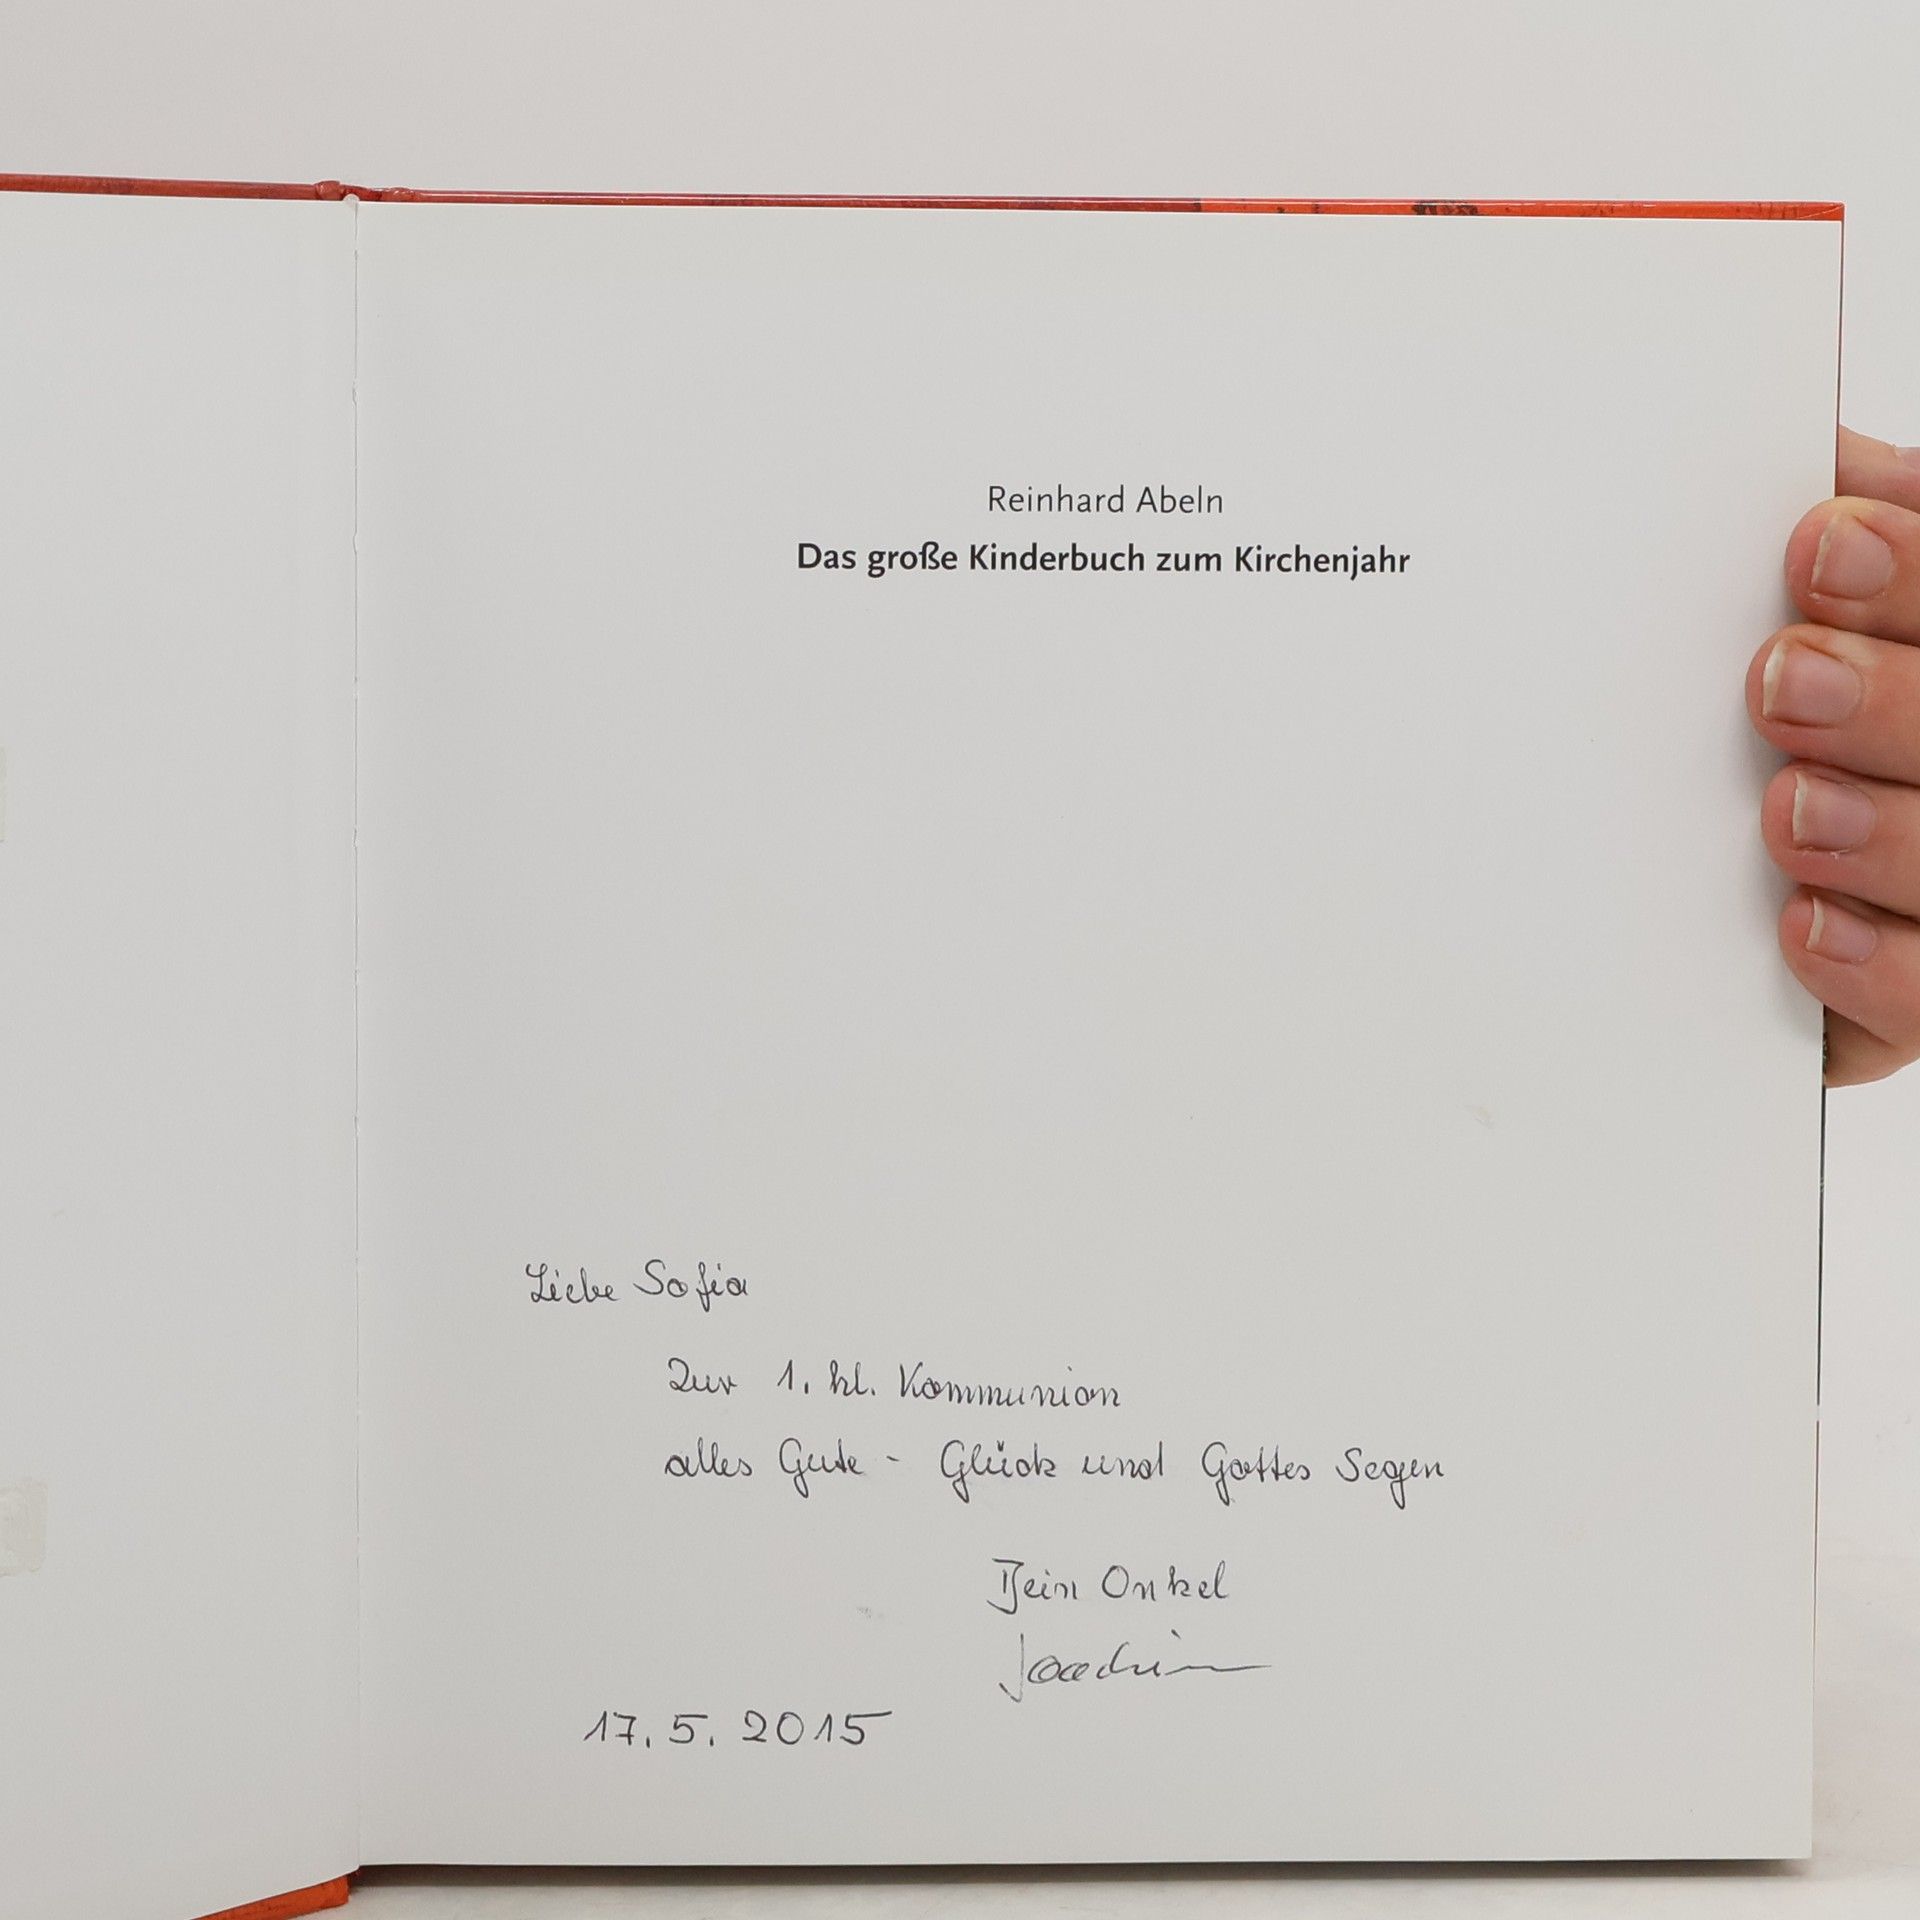 Reinhard Abeln
Das große Kinderbuch zum Kirchenjahr
Liebe Sofia
Zur 1. hl. Kommunion
alles Gute - Glück und Gottes Segen
Dein Onkel
Joachim
17. 5. 2015